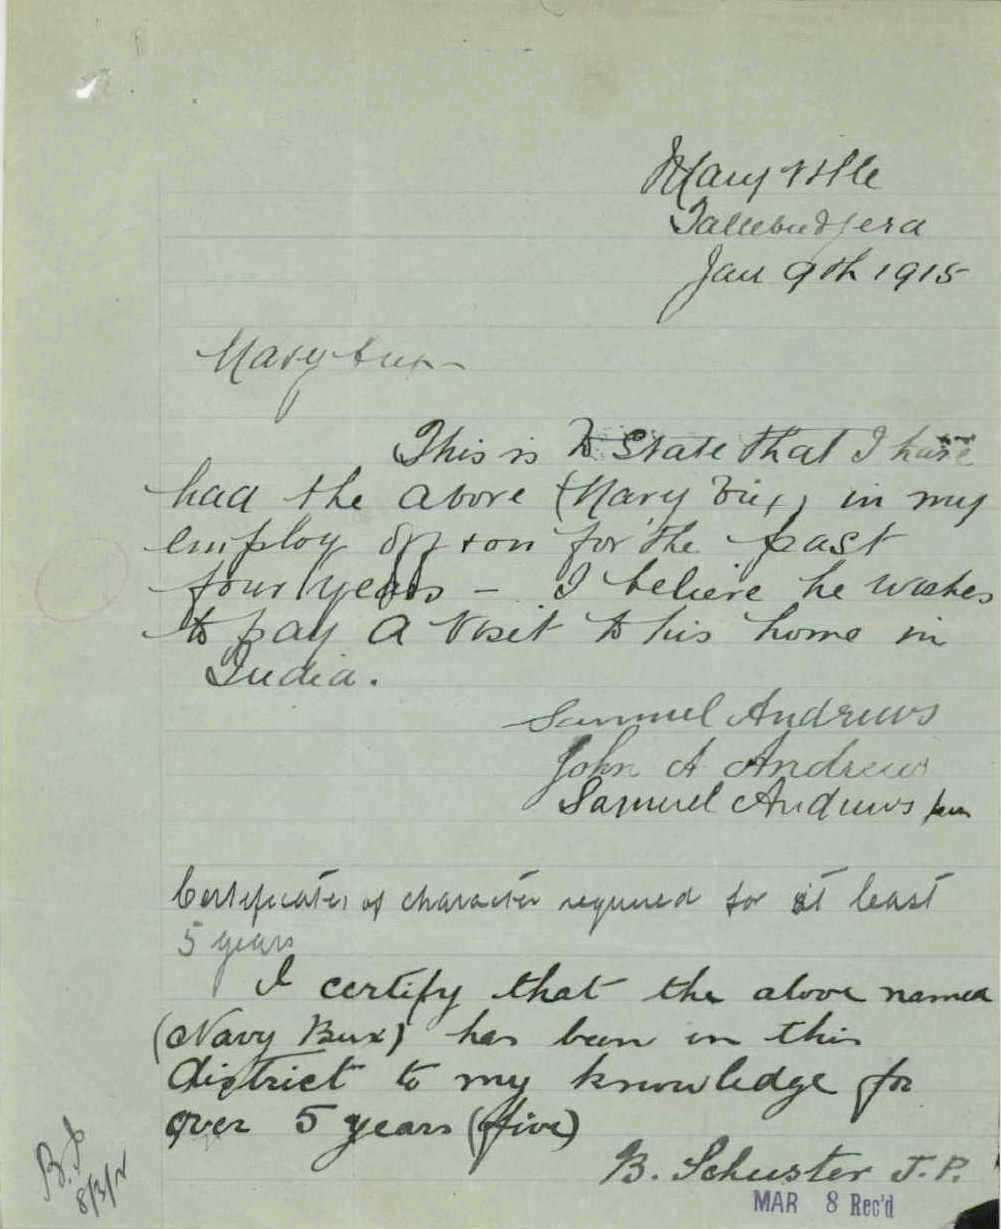 Maryville
Tallebudgera
Jan 9th 1915
Navy bux
This is to State that I have
had the above (Navy Bux) in my
employ off + on for the past
four years – I believe he wishes
to pay a visit to his home in
India.
Samuel Andrews
John A Andrews
Samuel Andrews jun
Certificates of character required for at least
5 years
I certify that the above named
(Navy Bux) has been in this
district to my knowledge for
over 5 years (five)
B. Schuster J.P.
MAR 8 Rec'd
8/3/